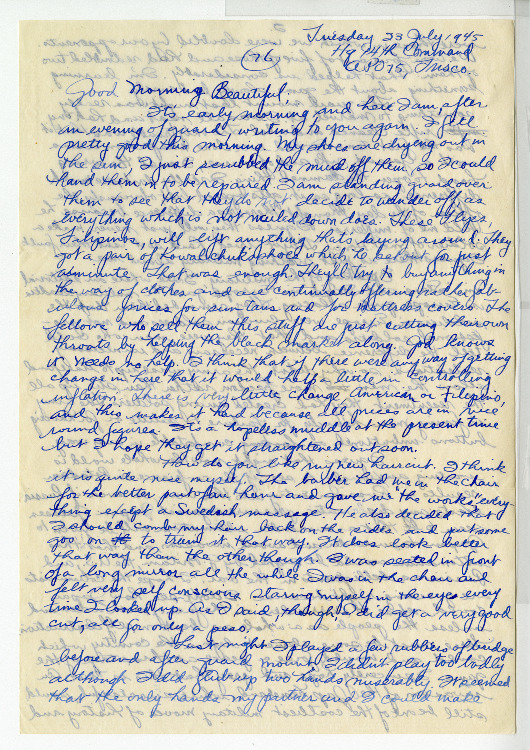 Tuesday 23 July 1945
Hq 24th Command
APO 75, Frisco.
(76)
Good Morning Beautiful,
It's early morning and here I am, after
an evening of guard, writing to you again. I feel
pretty good this morning. My shoes are drying out in
the sun. I just scrubbed the mud off them, so I could
hand them in to be repaired. I am standing guard over
them to see that they do not decide to wander off, as
everything which is not nailed down does. These
Filipinos, will lift anything thats laying around. They
got a pair of shoes which he set out for just
a minute. That was enough. They'll try to buy anything in
the way of clothes, and are continually offering ridic fab-
ulous prices for sun tans and for mattress covers. The
fellows who sell them this stuff are just cutting their own
throats by helping the black market along. God knows
it needs no help. I think that if there were any way of getting
change in here that it would help a little in controlling
inflation. There is very little change, American or Filipino,
and this makes it hard because all prices are in nice
round figures. It's a hopeless muddle at the present time
but I hope they get it straightened out soon.
How do you like my new haircut. I think
it is quite nice myself. The barber had me in the chair
for the better part of an hour and gave me the works, every-
thing except a Swedish message. He also decided that
I should comb my hair back on the sides and put some
goo on to train it that way. It does look better
that way than the other though. I was seated in front
of a long mirror all the while I was in the chair and
felt very self conscious staring myself in the eyes every
time I looked up. As I said, though, I did get a very good
cut, all for only a peso.
Last night I played a few rubbers of bridge
before and after guard mount. I didn't play too badly
although I did two hands miserably. It seemed
that the only hands my partner and I could make